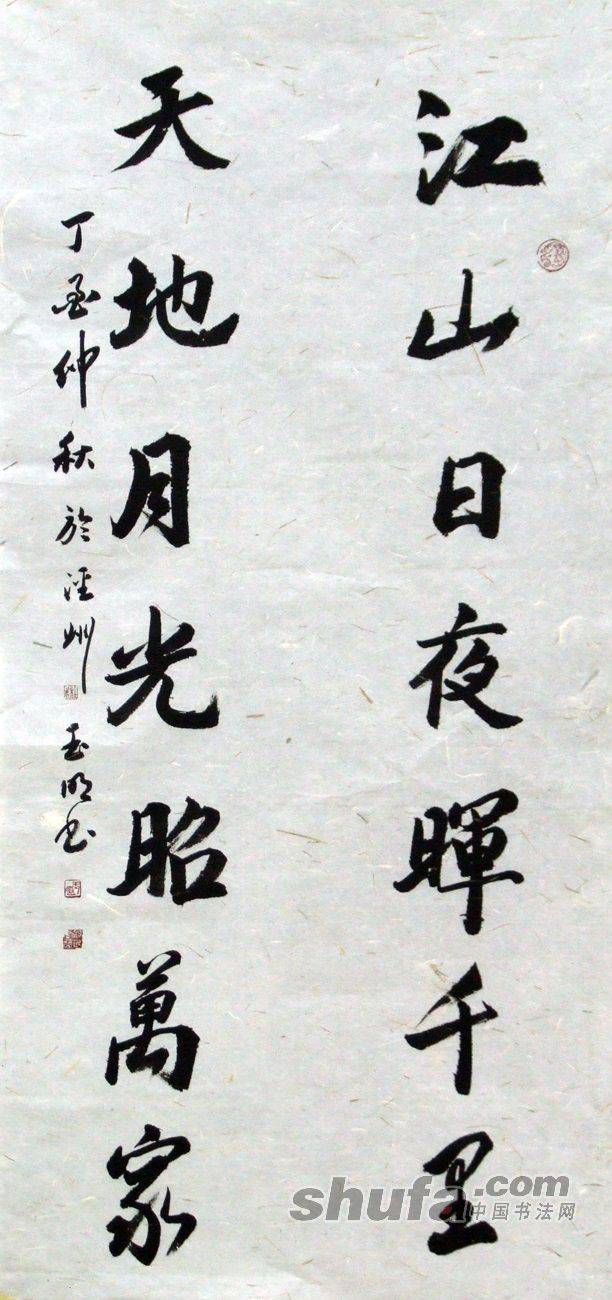 江山日夜暉千里
天地月光昭萬家
丁亥仲秋於涇州
玉明書
shufa.com
中国书法网